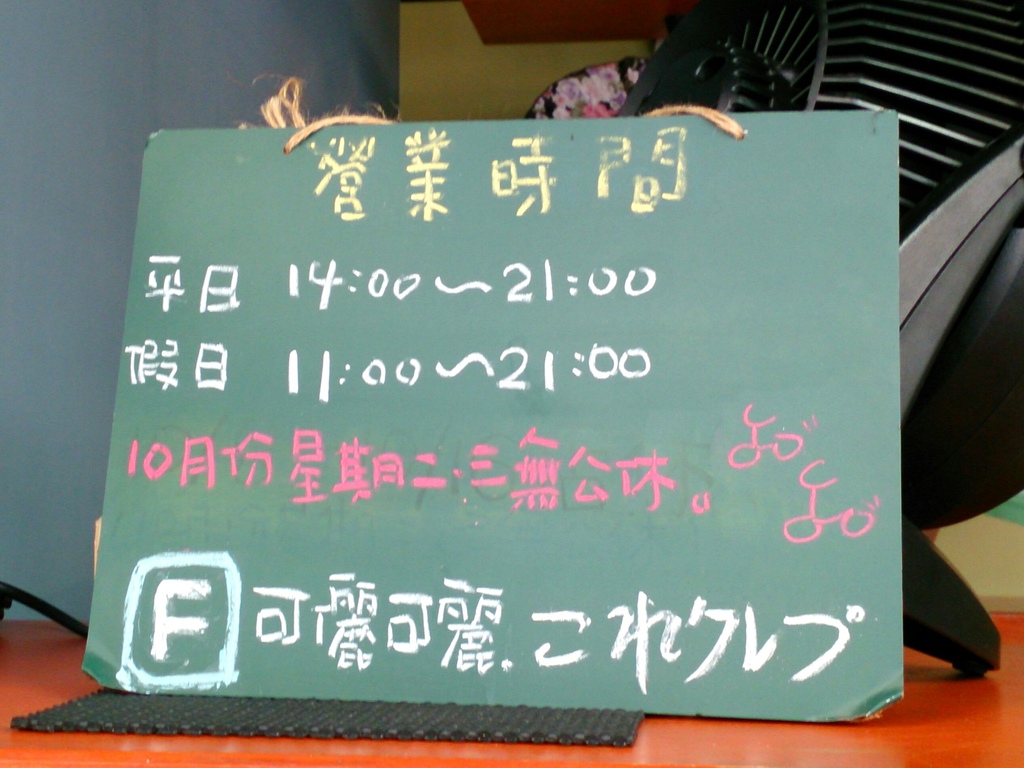 營業時間
平日 14:00～21:00
假日 11:00～21:00
10月份星期二.三無公休。
F 可儷可麗.これクレプ